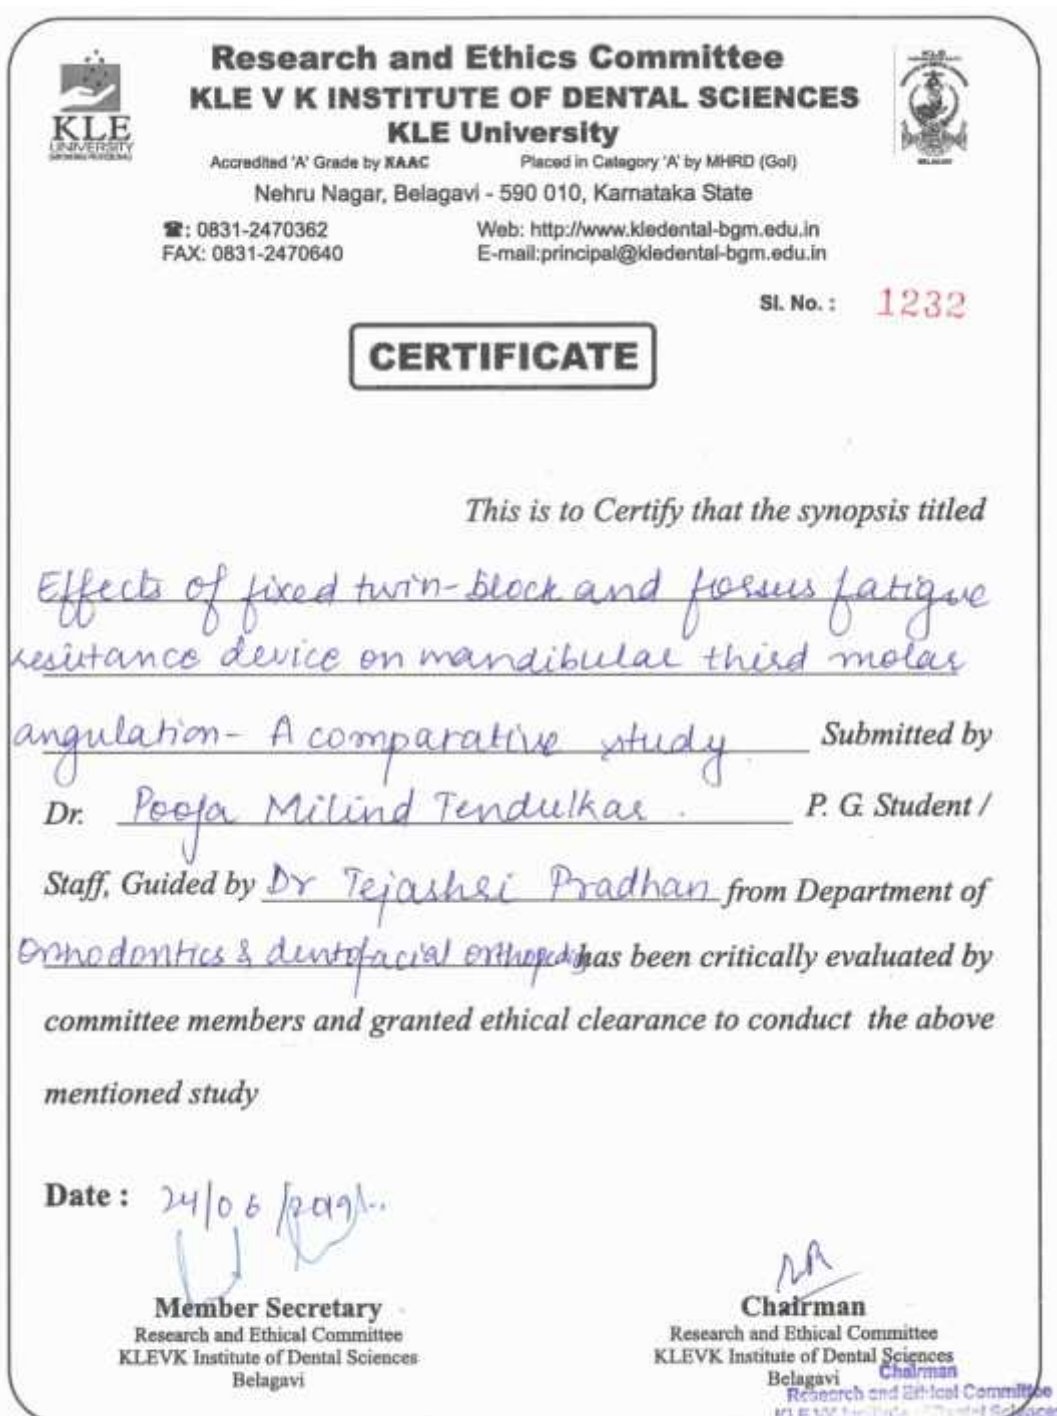 Research and Ethics Committee
KLE V K INSTITUTE OF DENTAL SCIENCES
KLE University
KLE
UNIVERSITY
KLE
BELAGAVI
Accredited 'A' Grade by NAAC Placed in Category 'A' by MHRD (GoI)
Nehru Nagar, Belagavi - 590 010, Karnataka State
☎: 0831-2470362 Web: http://www.kledental-bgm.edu.in
FAX: 0831-2470640 E-mail:principal@kledental-bgm.edu.in
Sl. No. : 1232
CERTIFICATE
This is to Certify that the synopsis titled
Effects of fixed twin-block and forsus fatigue
resistance device on mandibular third molar
angulation- A comparative study Submitted by
Dr. Pooja Milind Tendulkar . P. G. Student /
Staff, Guided by Dr Tejashri Pradhan from Department of
Orthodontics & dentofacial orthopedics has been critically evaluated by
committee members and granted ethical clearance to conduct the above
mentioned study
Date : 24/06/2019
Member Secretary
Research and Ethical Committee
KLEVK Institute of Dental Sciences
Belagavi
Chairman
Research and Ethical Committee
KLEVK Institute of Dental Sciences
Belagavi
Chairman
Research and Ethical Committee
KLE VK Institute of Dental Sciences